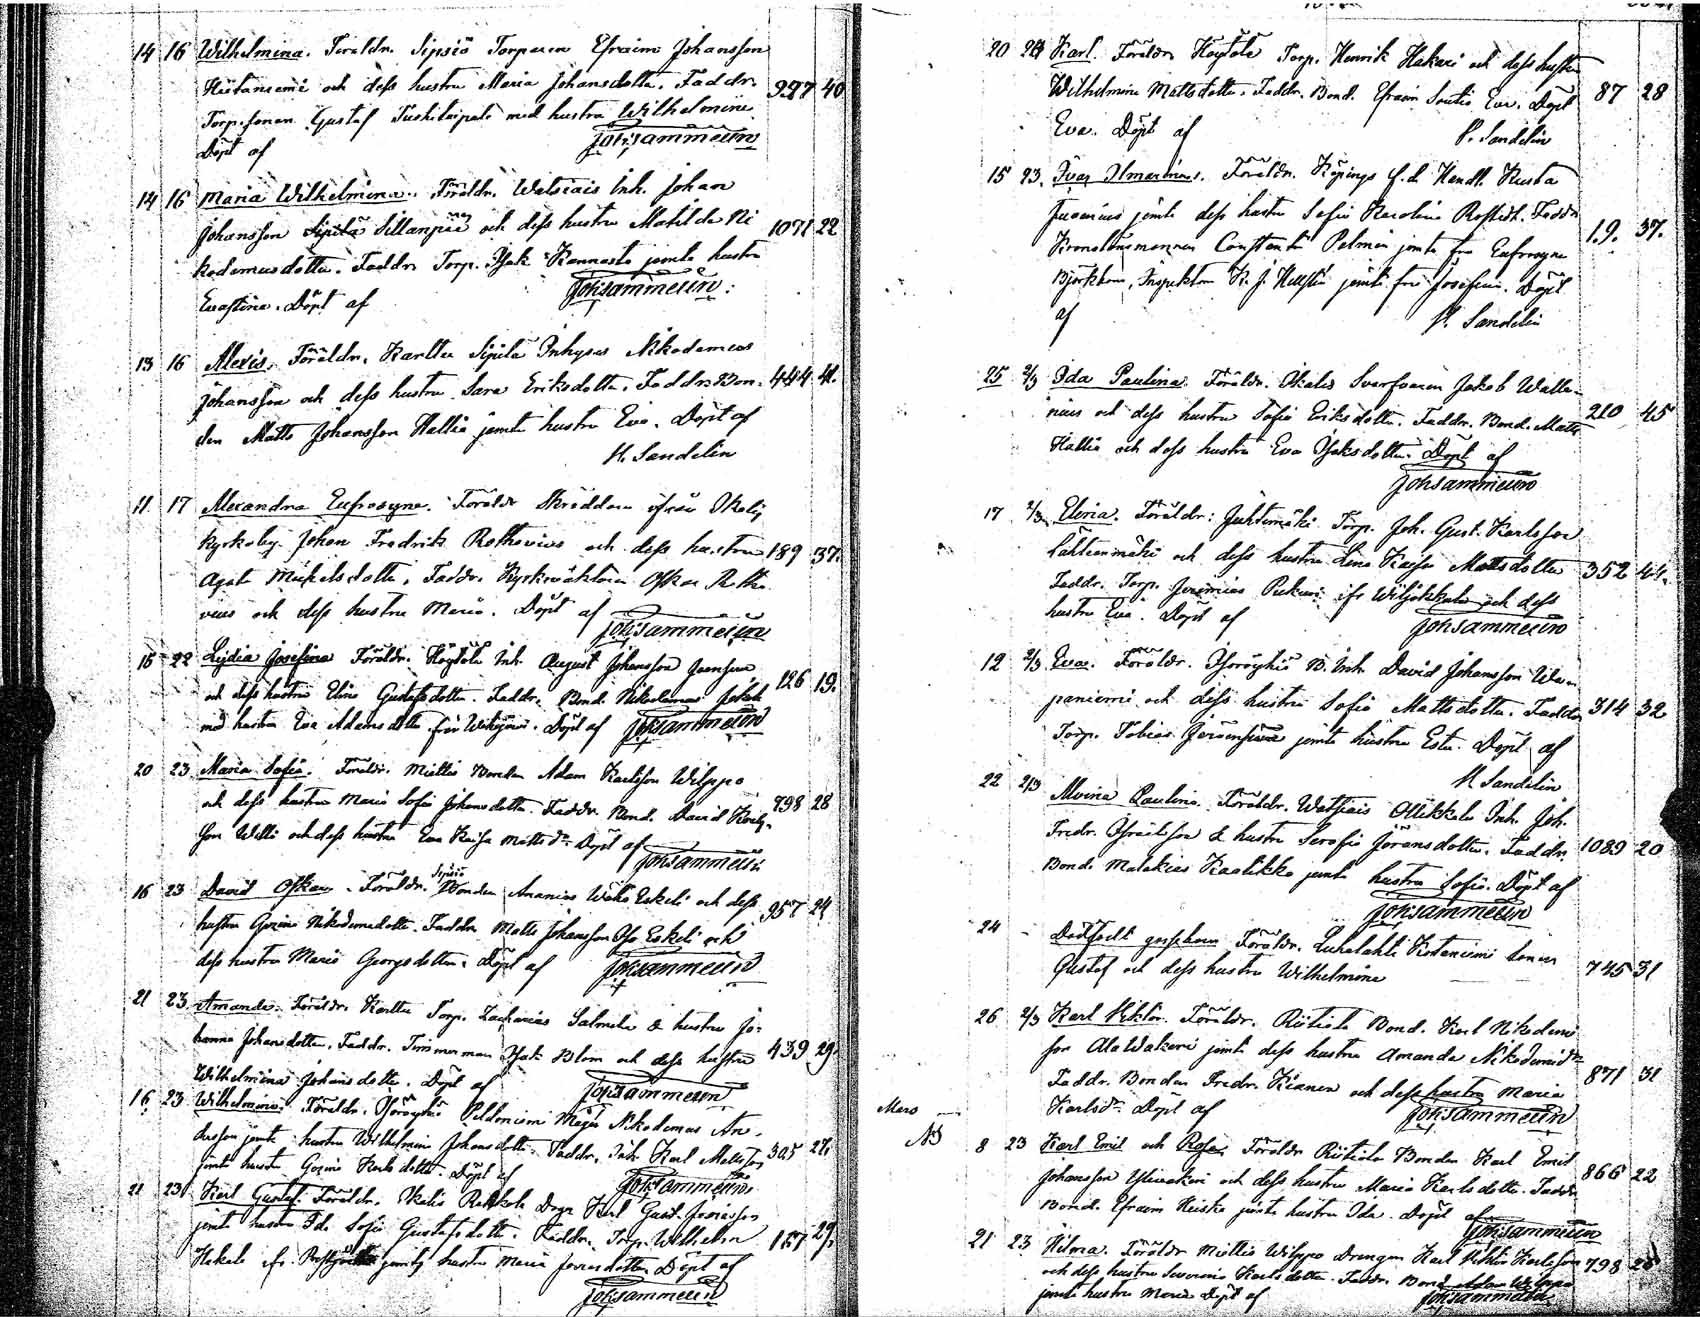 14 16 Wilhelmina. Föräldr. Sipsiö Torparen Efraim Johansson
Hietaniemi och dess hustru Maria Johansdotter. Faddr. 927 40
Torp.sonen Gustaf med hustru Wilhelmina
Döpt af Joh; Sammelin
14 16 Maria Wilhelmina. Föräldr. Watsiais Inh. Johan
Johansson Sillanpää och dess hustru Matilda Ni 1071 22
kodemusdotter. Faddr. Torp. Isak Kannasto jemte hustru
Evastina. Döpt af Joh; Sammelin
13 16 Alexis. Föräldr. Karttu Sipilä Inhyses Nikodemus
Johansson och dess hustru Sara Eriksdotter. Faddr. Bon- 444 41.
den Matts Johansson Hallia jemte hustru Eva. Döpt af
H. Sandelin
11 17 Alexandra Eufrosyne. Föräldr. Skräddaren Ikalis
kyrkoby Johan Fredrik Rothovius och dess hustru 189 37.
Agat. Mickelsdotter. Faddr. Kyrkwäktaren Oskar Rotho
vius och dess hustru Maria. Döpt af Joh; Sammelin
15 22 Lydia Josefina Föräldr. Höytölä Inh. August Johansson
och dess hustru Elina Gustafsdotter. Faddr. Bond. Nikodemus 126 19.
med hustru Eva Adamsdotter från. Döpt af Joh; Sammelin
20 23 Maria Sofia. Föräldr. Miettis Bonden Adam Karlsson Wilppo
och dess hustru Maria Sofia Johansdotter. Faddr. Bond. David Karls- 798 28
son Willi och dess hustru Eva Kaisa Mattsdr. Döpt af Joh; Sammelin
16 23 David Oskar. Föräldr. Sipsiö Bonden Ananias Wähä Eskeli och dess
hustru Gezina Nikodemusdotter. Faddr. Matts Johansson Iso Eskeli och 957 24
dess hustru Maria Georgsdotter. Döpt af Joh; Sammelin
21 23 Amanda. Föräldr. Karttu Torp. Zacharias Salmela & hustru Jo-
hanna Johansdotter. Faddr. Timmerman Isak Blom och dess hustru 439 29.
Wilhelmina Johansdotter. Döpt af Joh; Sammelin
16. 23 Wilhelmina. Föräldr. Isoröyhiö Peldoniemi Måg Nikodemus An-
dersson jemte hustru Wilhelmina Johansdotter. Faddr. Inh. Karl Mattsson 305 27.
jemte hustru Gezina Karlsdotter. Döpt af Joh; Sammelin
21 23 Karl Gustaf. Föräldr. Ikalis Dräng Karl Gust.
jemte hustru Ida Sofia Gustafsdotter. Faddr. Torp. Wilhelm 157 29.
Hakala fr. jemte hustru Maria dotter. Döpt af
Joh; Sammelin
20 24 Karl. Föräldr. Höytölä Torp. Henrik Hakari och dess hustru
Wilhelmina Mattsdotter. Faddr. Bond. Efraim Eva. Döpt 87 28
Eva. Döpt af H. Sandelin
15 23. Ivar Ilmarinus. Föräldr. Köpings f.d. Handl. Kusta
Juvenius jemte dess hustru Sofia Karolina Rostedt. Faddr. 1.9. 37.
Kronolänsmannen Constantin Pelmén jemte fru Eufrosyne
Björkbom, Inspektor K. J. jemte fru Josefina. Döpt
af H. Sandelin
25 2/3 Ida Paulina. Föräldr. Ikalis Svarfvaren Jakob Walle-
nius och dess hustru Sofia Eriksdotter. Faddr. Bond. Matts 210 45
Hallia och dess hustru Eva Isaksdotter. Döpt af
Joh; Sammelin
17 2/3 Elviia. Föräldr: Juhtimäki Torp. Joh. Gust. Karlsson
Lähteenmäki och dess hustru Lena Kaisa Mattsdotter 352 44.
Faddr. Torp. Jeremias ifr. och dess
hustru Eva. Döpt af Joh; Sammelin
12 2/3 Eva. Föräldr. Isoröyhiö B. Inh. David Johansson
paniemi och dess hustru Sofia Mattsdotter. Faddr. 314 32
Torp. Tobias jemte hustru Ester. Döpt af
H. Sandelin
22 2/3 Alvina Paulina. Föräldr. Watsiais Ollikkala Inh. Joh.
Fredr. Israelsson & hustru Serafia Göransdotter. Faddr. 1089 20
Bond. Malakias Kaalikko jemte hustru Sofia. Döpt af
Joh; Sammelin
24 - Dödfödt gossebarn Föräldr. Luhalahti Kotaniemi sonen
Gustaf och dess hustru Wilhelmina 745 31
26 2/3 Karl Viktor. Föräldr. Riitiala Bond. Karl Nikodemus
son Ala Wakeri jemte dess hustru Amanda Nikodemidr.
Faddr. Bonden Fredr. Kianen och dess hustru Maria 871 31
Karlsdr. Döpt af Joh; Sammelin
Mars
NB 8 23 Karl Emil och Rosa. Föräldr. Riitiala Bonden Karl Emil
Johansson Yliwakeri och dess hustru Maria Karlsdotter. Faddr. 866 22
Bond. Efraim Heiska jemte hustru Ida. Döpt af Joh; Sammelin
21 23 Hilma. Föräldr. Miettis Wilppo Drengen Karl Viktor Karlsson 798 28
och dess hustru Severina Karlsdotter. Faddr. Bond. Adam Wilppo
jemte hustru Maria Döpt af Joh; Sammelin